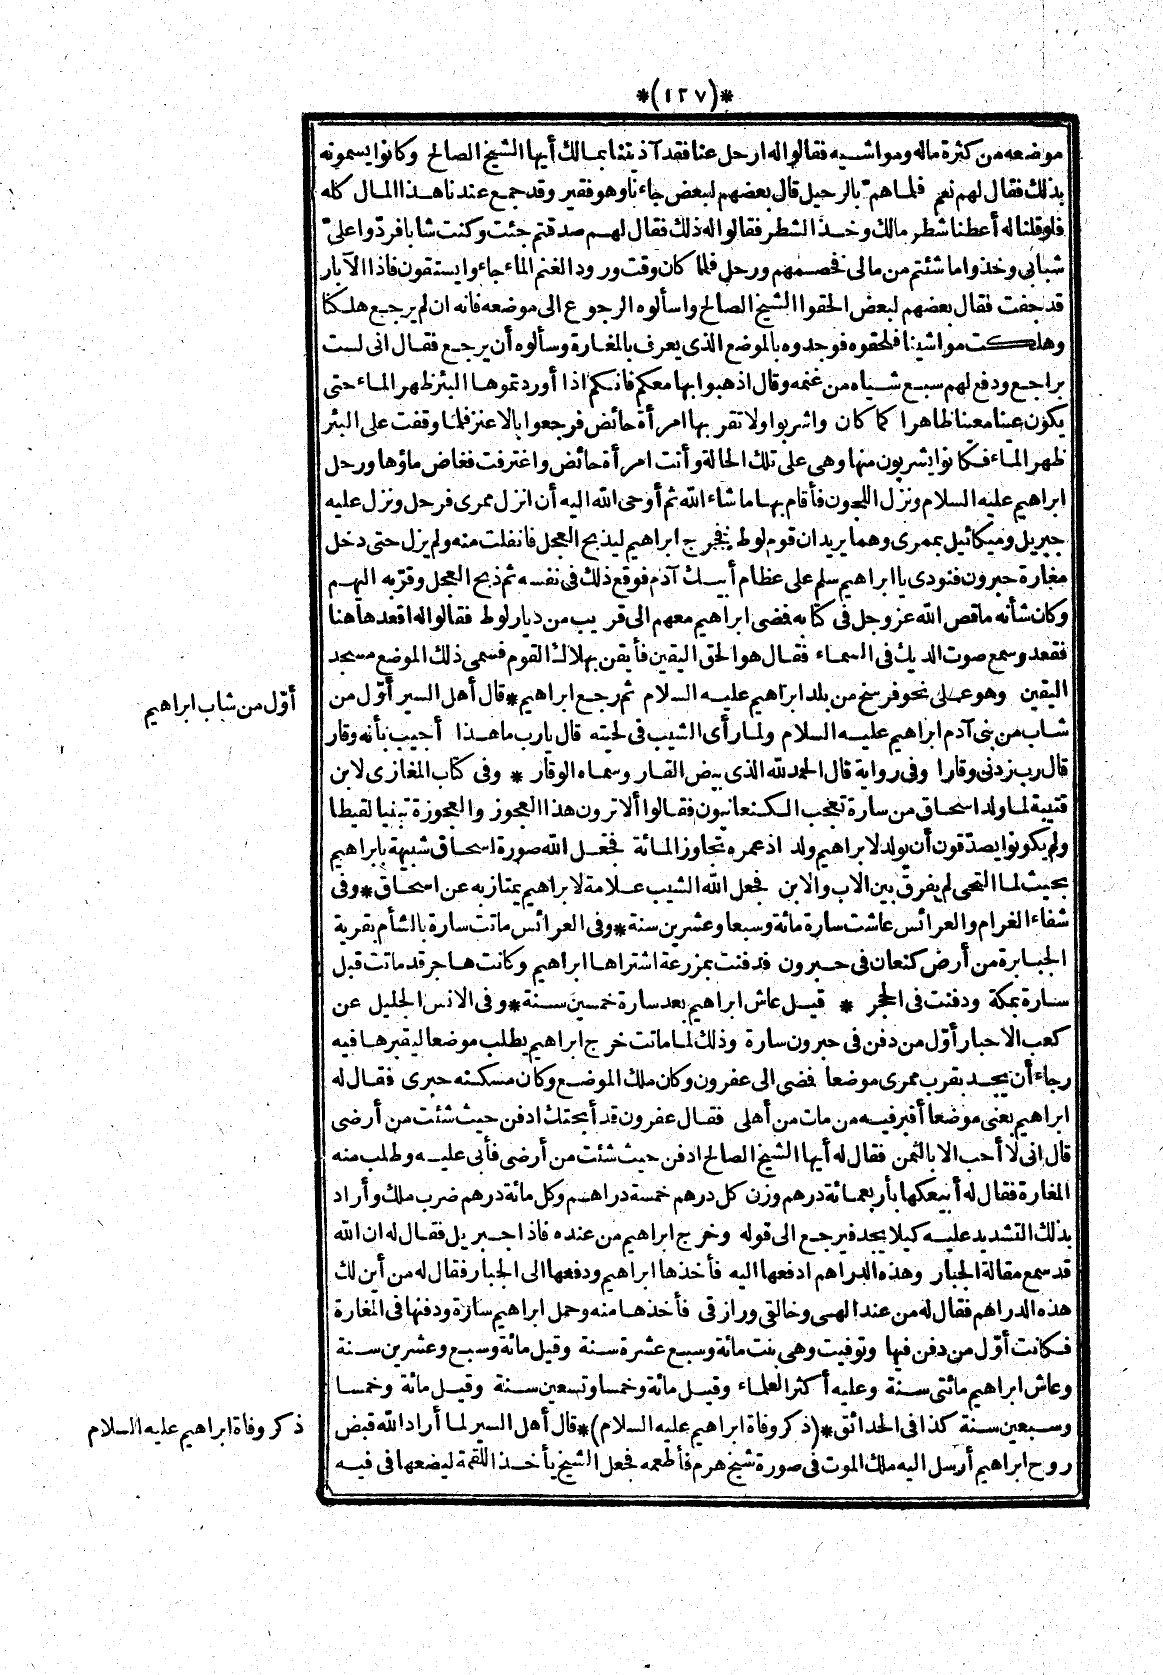 *(١٢٧)*
موضعه من كثرة ماله ومواشيه فقالوا له ارحل عنا فقد آذيتنا بمالك أيها الشيخ الصالح وكانوا يسمونه
بذلك فقال لهم نعم فلما همّ بالرحيل قال بعضهم لبعض جاءنا وهو فقير وقد جمع عندنا هذا المال كله
فلو قلنا له أعطنا شطر مالك وخذ الشطر فقالوا له ذلك فقال لهم صدقتم جئت وكنت شابا فردّوا علىّ
شبابى وخذوا ما شئتم من مالى فخصمهم ورحل فلما كان وقت ورود الغنم الماء جاءوا يستقون فاذا الآبار
قد جفت فقال بعضهم لبعض الحقوا الشيخ الصالح واسألوه الرجوع الى موضعه فانه ان لم يرجع هلكنا
وهلكت مواشينا فلحقوه فوجدوه بالموضع الذى يعرف بالمغارة وسألوه أن يرجع فقال انى لست
براجع ودفع لهم سبع شياه من غنمه وقال اذهبوا بها معكم فانكم اذا أوردتموها البئر ظهر الماء حتى
يكون عينا معينا ظاهرا كما كان واشربوا ولا تقربها امرأة حائض فرجعوا بالاعنز فلما وقفت على البئر
ظهر الماء فكانوا يشربون منها وهى على تلك الحالة وأتت امرأة حائض واغترفت فغاض ماؤها ورحل
ابراهيم عليه السلام ونزل اللجون فأقام بها ما شاء الله ثم أوحى الله اليه أن انزل ممرى فرحل ونزل عليه
جبريل وميكائيل بممرى وهما يريدان قوم لوط فخرج ابراهيم ليذبح العجل فانفلت منه ولم يزل حتى دخل
مغارة حبرون فنودى يا ابراهيم سلم على عظام أبيك آدم فوقع ذلك فى نفسه ثم ذبح العجل وقرّبه اليهم
وكان شأنه ما قص الله عز وجل فى كتابه فمضى ابراهيم معهم الى قريب من ديار لوط فقالوا له اقعد هاهنا
فقعد وسمع صوت الديك فى السماء فقال هو الحق اليقين فأيقن بهلاك القوم فسمى ذلك الموضع مسجد
اليقين وهو على نحو فرسخ من بلد ابراهيم عليه السلام ثم رجع ابراهيم * قال أهل السير أوّل من
أوّل من شاب ابراهيم
شاب من بنى آدم ابراهيم عليه السلام ولما رأى الشيب فى لحيته قال يارب ما هذا أجيب بأنه وقار
قال رب زدنى وقارا وفى رواية قال الحمد لله الذى بيض القار وسماه الوقار * وفى كتاب المغازى لابن
قتيبة لما ولد اسحاق من سارة تعجب الكنعانيون فقالوا ألا ترون هذا العجوز والعجوزة تبنيا لقيطا
ولم يكونوا يصدّقون أن يولد لابراهيم ولد اذ عمره تجاوز المائة فجعل الله صورة اسحاق شبيهة بابراهيم
بحيث لما التحى لم يفرق بين الاب والابن فجعل الله الشيب علامة لابراهيم يمتاز به عن اسحاق * وفى
شفاء الغرام والعرائس عاشت سارة مائة وسبعا وعشرين سنة * وفى العرائس ماتت سارة بالشأم بقرية
الجبابرة من أرض كنعان فى حبرون فدفنت بمزرعة اشتراها ابراهيم وكانت هاجر قد ماتت قبل
سارة بمكة ودفنت فى الحجر * قيل عاش ابراهيم بعد سارة خمسين سنة * وفى الانس الجليل عن
كعب الاحبار أوّل من دفن فى حبرون سارة وذلك لما ماتت خرج ابراهيم يطلب موضعا ليقبرها فيه
رجاء أن يجد بقرب ممرى موضعا فمضى الى عفرون وكان ملك الموضع وكان مسكنه حبرى فقال له
ابراهيم بعنى موضعا أقبر فيه من مات من أهلى فقال عفرون قد أبحتك ادفن حيث شئت من أرضى
قال انى لا أحب الا بالثمن فقال له أيها الشيخ الصالح ادفن حيث شئت من أرضى فأبى عليه وطلب منه
المغارة فقال له أبيعكها بأربعمائة درهم وزن كل درهم خمسة دراهم وكل مائة درهم ضرب ملك وأراد
بذلك التشديد عليه كيلا يجد فيرجع الى قوله وخرج ابراهيم من عنده فاذا جبريل فقال له ان الله
قد سمع مقالة الجبار وهذه الدراهم ادفعها اليه فأخذها ابراهيم ودفعها الى الجبار فقال له من أين لك
هذه الدراهم فقال له من عند الهى وخالقى ورازقى فأخذها منه وحمل ابراهيم سارة ودفنها فى المغارة
فكانت أوّل من دفن فيها وتوفيت وهى بنت مائة وسبع عشرة سنة وقيل مائة وسبع وعشرين سنة
وعاش ابراهيم مائتى سنة وعليه أكثر العلماء وقيل مائة وخمسا وتسعين سنة وقيل مائة وخمسا
وسبعين سنة كذا فى الحدائق * (ذكر وفاة ابراهيم عليه السلام) * قال أهل السير لما أراد الله قبض
ذكر وفاة ابراهيم عليه السلام
روح ابراهيم أرسل اليه ملك الموت فى صورة شيخ هرم فأطعمه فجعل الشيخ يأخذ اللقمة ليضعها فى فيه